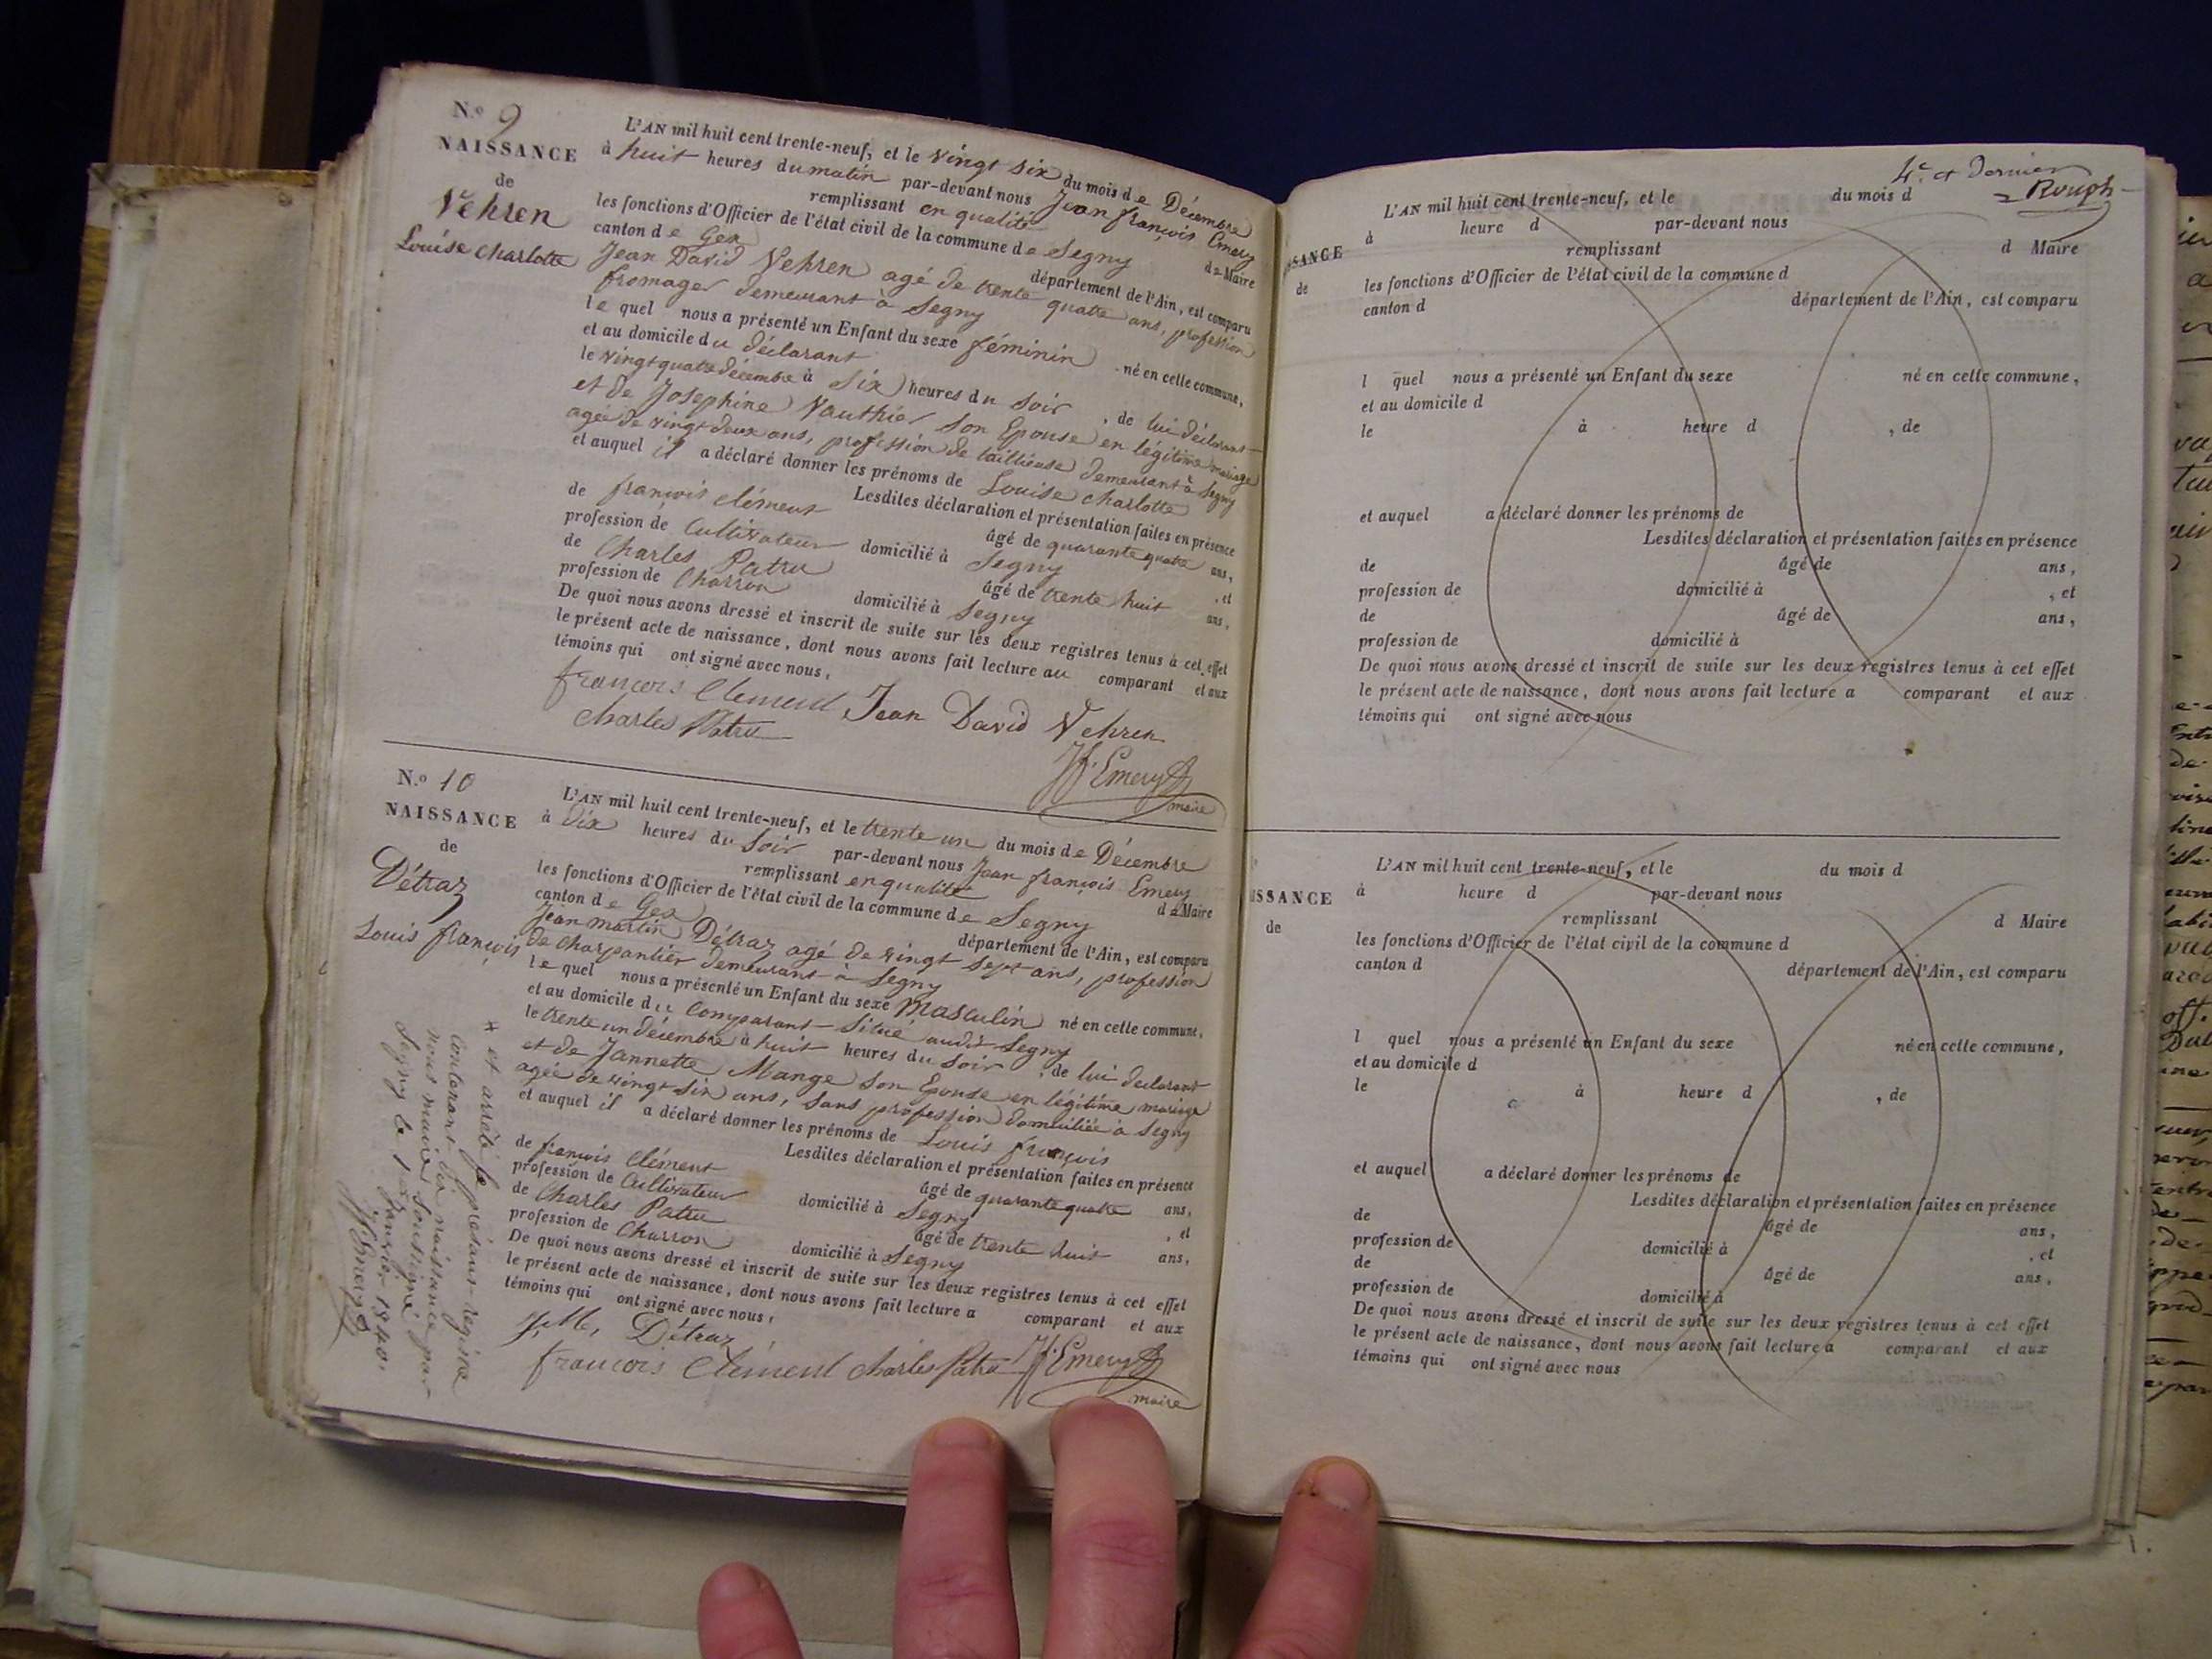 N.o 9
NAISSANCE
de
Vehren
Louise Charlotte
L'AN mil huit cent trente-neuf, et le vingt six du mois de Décembre
à huit heures du matin par-devant nous Jean françois Emery
remplissant en qualité de Maire
les fonctions d'Officier de l'état civil de la commune de Segny
canton de Gex département de l'Ain, est comparu
Jean David Vehren agé de trente quatre ans, profession
fromager demeurant à Segny
le quel nous a présenté un Enfant du sexe féminin né en celle commune,
et au domicile du déclarant
le vingt quatre décembre à six heures du soir, de lui déclarant
et de Josephine Vauthier son Epouse en légitime mariage
agée de vingt deux ans, profession de taillieuse demeurant à Segny
et auquel il a déclaré donner les prénoms de Louise Charlotte
Lesdites déclaration et présentation faites en présence
de françois clément âgé de quarante quatre ans,
profession de Cultivateur domicilié à Segny, et
de Charles Patru âgé de trente huit ans,
profession de Charron domicilié à Segny
De quoi nous avons dressé et inscrit de suite sur les deux registres tenus à cet effet
le présent acte de naissance, dont nous avons fait lecture au comparant et aux
témoins qui ont signé avec nous,
francois Clement Jean David Vehren
Charles Patru
Jf. Emery
maire
N.o 10
NAISSANCE
de
Détraz
Louis françois
L'AN mil huit cent trente-neuf, et le trente un du mois de Décembre
à Dix heures du Soir par-devant nous Jean françois Emery
remplissant en qualité de Maire
les fonctions d'Officier de l'état civil de la commune de Segny
canton de Gex département de l'Ain, est comparu
Jean martin Détraz agé de vingt sept ans, profession
de charpantier demeurant à Segny
le quel nous a présenté un Enfant du sexe Masculin né en celle commune,
et au domicile du Comparant situé audit Segny
le trente un décembre à huit heures du Soir, de lui declarant
et de Jannette Mange son Epouse en légitime mariage
agée de vingt six ans, sans profession domiciliée à Segny
et auquel il a déclaré donner les prénoms de Louis françois
Lesdites déclaration et présentation faites en présence
de françois Clément âgé de quarante quatre ans,
profession de Cultivateur domicilié à Segny, et
de Charles Patru âgé de trente huit ans,
profession de Charron domicilié à Segny
De quoi nous avons dressé et inscrit de suite sur les deux registres tenus à cet effet
le présent acte de naissance, dont nous avons fait lecture a comparant et aux
témoins qui ont signé avec nous,
Détraz
francois Clement Charles Patru Jf. Emery
maire
et arrêté le présent registre
contenant dix naissance par
nous maire soussigné
Segny le 1er Janvier 1840.
Jf Emery
4e et Dernier
Rouph
SSANCE
de
L'AN mil huit cent trente-neuf, et le du mois d
à heure d par-devant nous
remplissant d Maire
les fonctions d'Officier de l'état civil de la commune d
canton d département de l'Ain, est comparu
l quel nous a présenté un Enfant du sexe né en celle commune,
et au domicile d
le à heure d , de
et auquel a déclaré donner les prénoms de
Lesdites déclaration et présentation faites en présence
de âgé de ans,
profession de domicilié à , et
de âgé de ans,
profession de domicilié à
De quoi nous avons dressé et inscrit de suite sur les deux registres tenus à cet effet
le présent acte de naissance, dont nous avons fait lecture a comparant et aux
témoins qui ont signé avec nous
ISSANCE
de
L'AN mil huit cent trente-neuf, et le du mois d
à heure d par-devant nous
remplissant d Maire
les fonctions d'Officier de l'état civil de la commune d
canton d département de l'Ain, est comparu
l quel nous a présenté un Enfant du sexe né en celle commune,
et au domicile d
le à heure d , de
et auquel a déclaré donner les prénoms de
Lesdites déclaration et présentation faites en présence
de âgé de ans,
profession de domicilié à , et
de âgé de ans,
profession de domicilié à
De quoi nous avons dressé et inscrit de suite sur les deux registres tenus à cet effet
le présent acte de naissance, dont nous avons fait lecture a comparant et aux
témoins qui ont signé avec nous